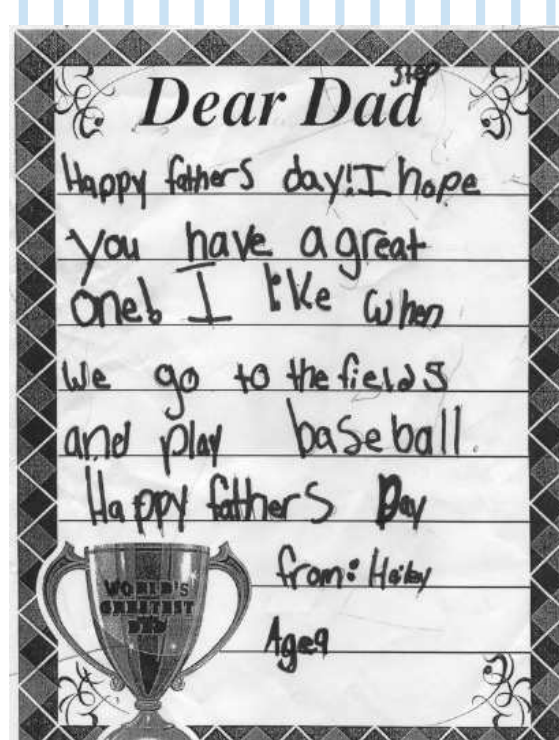 step
Dear Dad
Happy fathers day! I hope
you have a great
one! I like when
We go to the fields
and play baseball.
Happy fathers Day
from: Hailey
Age 9
WORLD'S
GREATEST
DAD